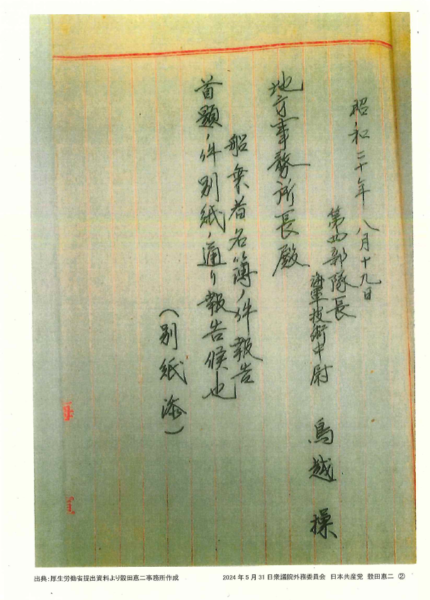 昭和二十年八月十九日
第四部隊長
海軍技術中尉 鳥越 操
地方事務所長殿
船乗者名簿ノ件報告
首題ノ件別紙ノ通リ報告候也
(別紙添)
出典:厚生労働省提出資料より穀田恵二事務所作成
2024年5月31日衆議院外務委員会 日本共産党 穀田恵二 ②